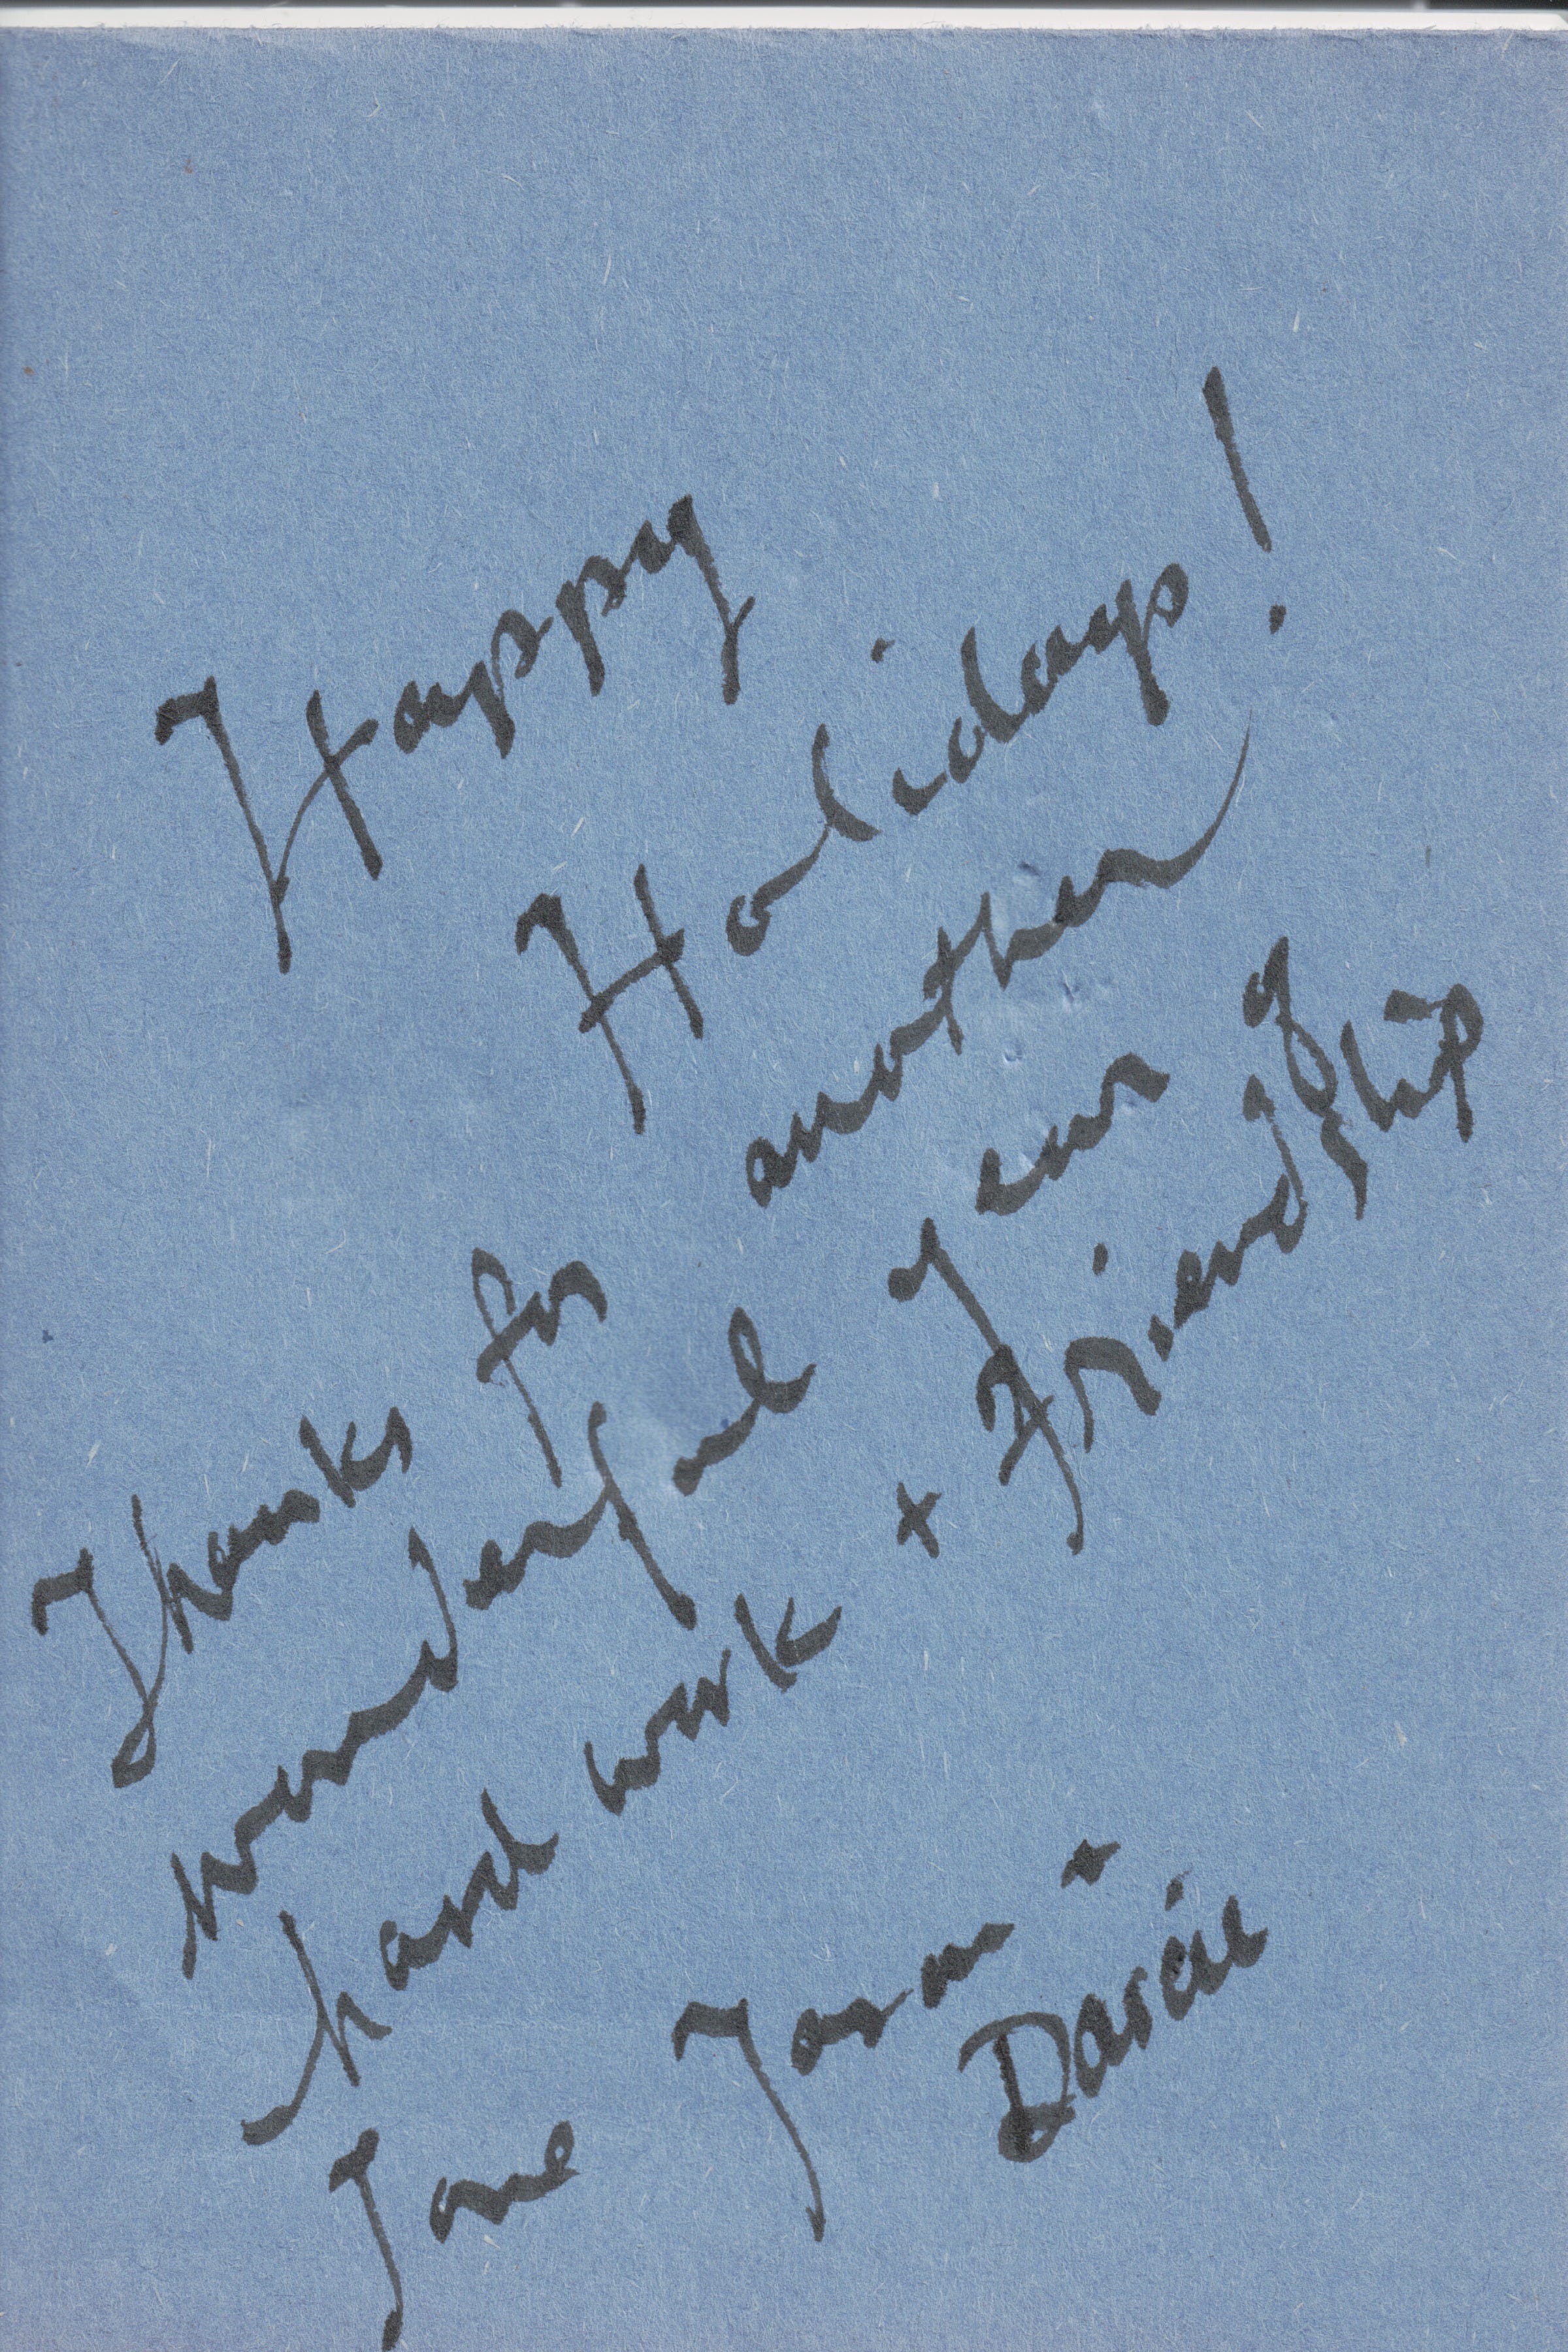 Happy
Holidays!
Thanks for another
wonderful Year of
hard work + Friendship
Jane Jason +
Darcie